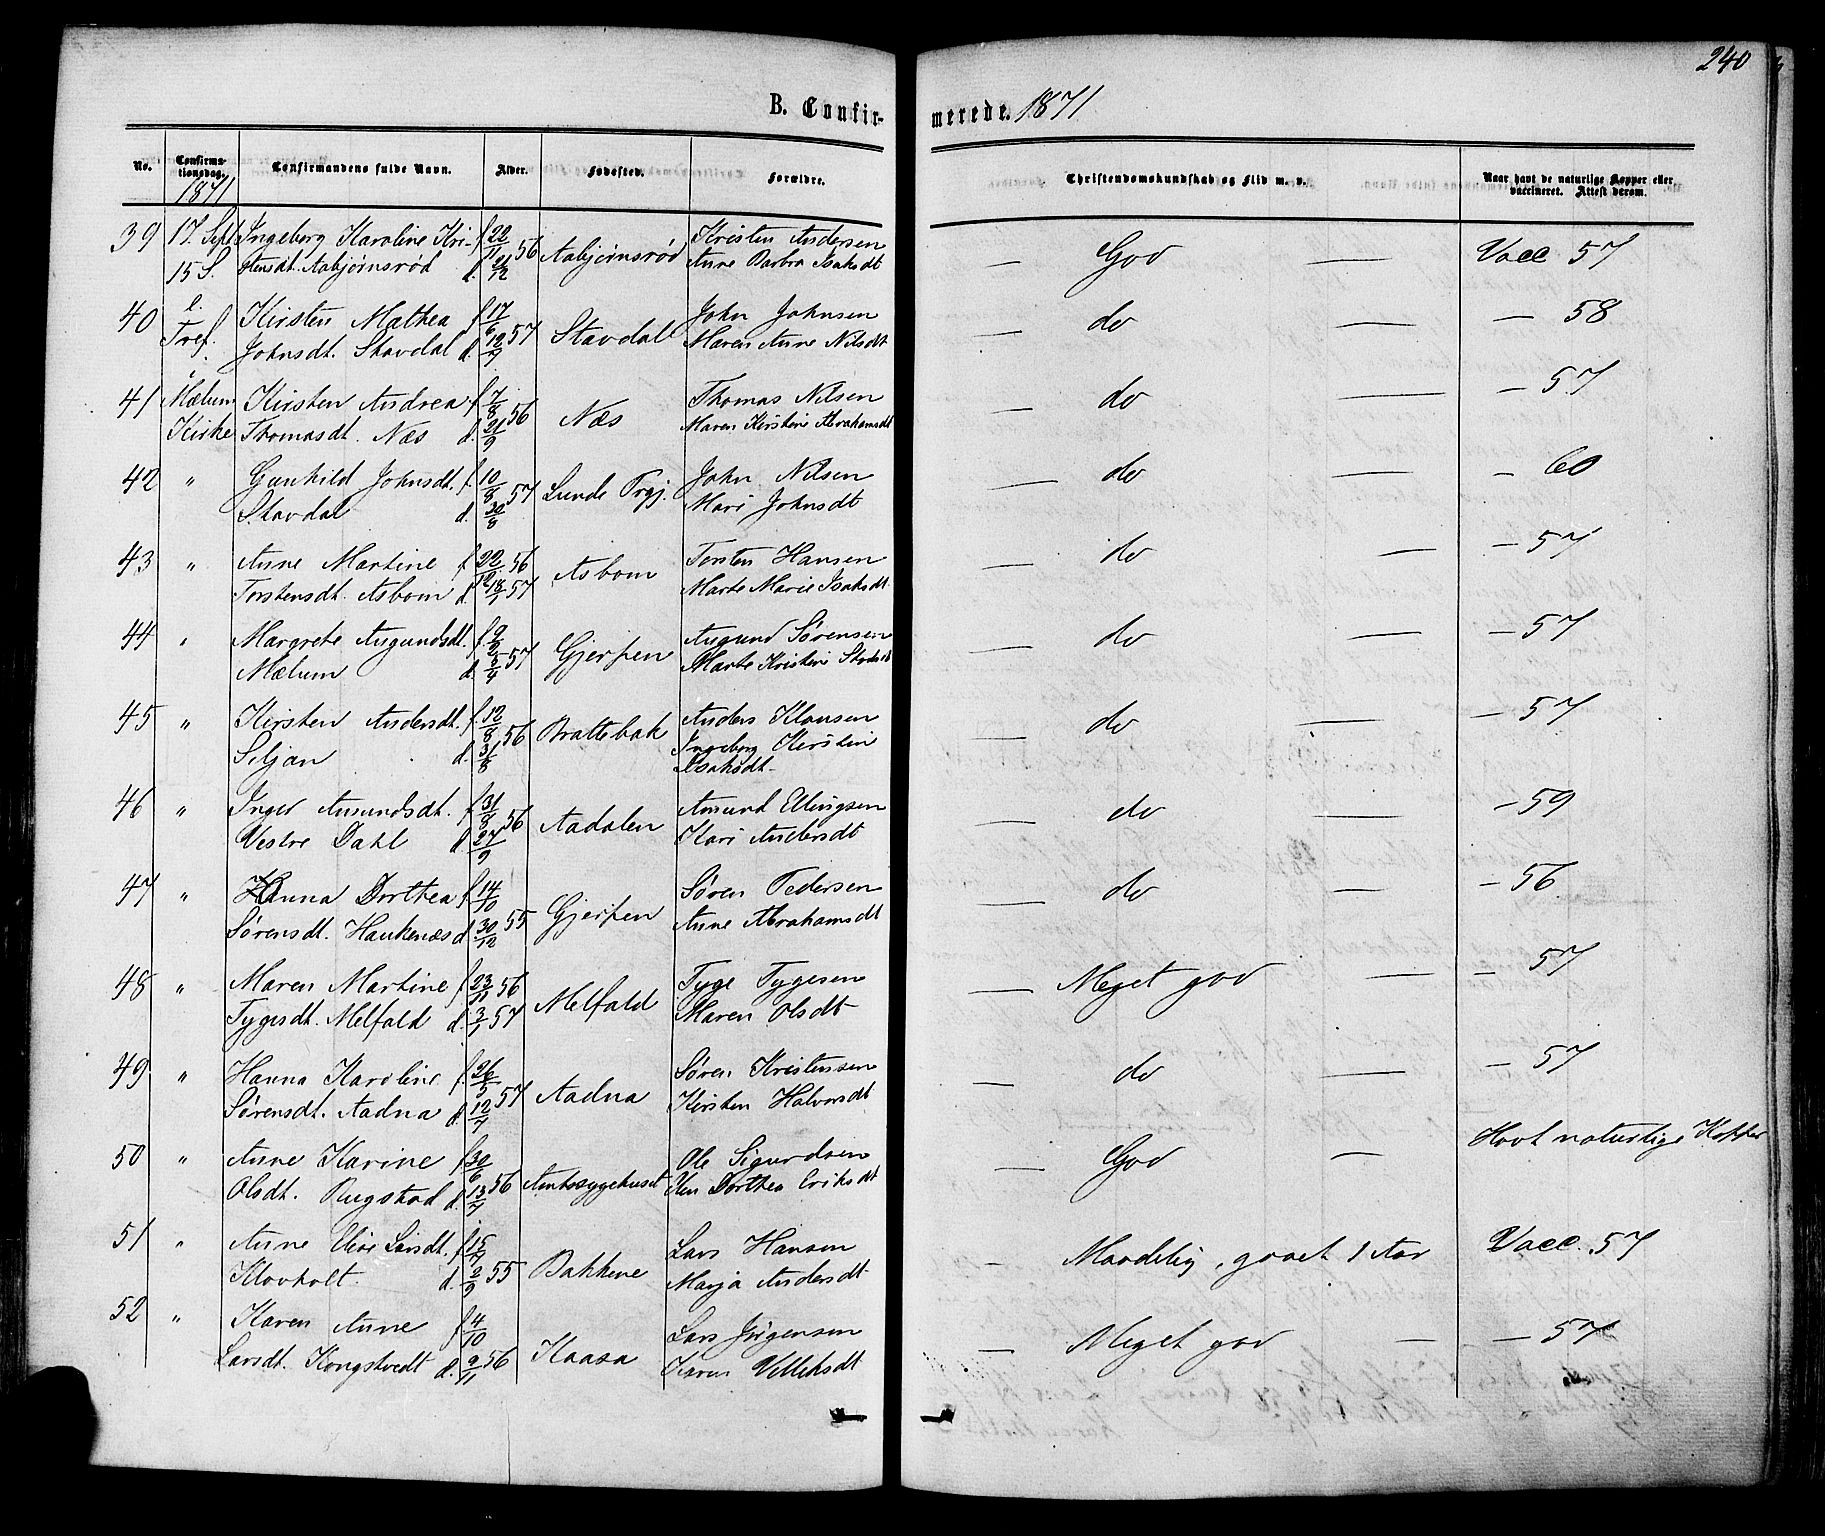 240
B. Confir-
merede. 1871
No.
Confirma-
tionsdag.
1871
Confirmandens fulde Navn.
Alder.
Fødested.
Forældre.
Christendomskundskab og Flid m. v.
Naar havt de naturlige Kopper eller
vaccineret. Attest derom.
39 17. Sept Ingeborg Karoline Kri- f. 22/11 56 Aabjørnsrød Kristen Andersen — God — Vacc 57
15 S. stensdt. Aabjørnsrød d. 21/12 Anne Barbra Isaksdt
40 e. Kirsten Mathea f. 17/6 57 Stavdal John Johnsen — do — — 58
Tref. Johnsdt. Stavdal d. 12/7 Maren Anne Nilsdt
41 i Mælum Kirsten Andrea f. 7/8 56 Næs Thomas Nilsen — do — — 57
Kirke Thomasdt. Næs d. 21/9 Maren Kirstine Abrahamsdt
42 " Gunhild Johnsdt. f. 10/8 57 Lunde Prgj. John Nilsen — do — — 60
Stavdal d. 30/8 Mari Johnsdt
43 " Anne Martine f. 22/12 56 Asbom Torsten Hansen — do — — 57
Torstensdt. Asbom d. 18/1 57 Marte Marie Isaksdt
44 " Margrete Augundsdt. f. 2/2 57 Gjerpen Augund Sørensen — do — — 57
Mælum d. 5/4 Marte Kristine
45 " Kirsten Andersdt. f. 12/8 56 Brattebak Anders Klausen — do — — 57
Siljan d. 31/8 Ingeborg Kirstine
Isaksdt
46 " Inger Amundsdt. f. 31/8 56 Aadalen Amund Ellingsen — do — — 59
Vestre Dahl d. 27/9 Kari Andersdt
47 " Hanna Dorthea f. 14/10 55 Gjerpen Søren Pedersen — do — — 56
Sørensdt. Haukenæs d. 30/12 Anne Abrahamsdt
48 " Maren Martine f. 23/11 56 Melfald Tyge Tygesen — Meget god — — 57
Tygesdt. Melfald d. 3/1 57 Maren Olsdt
49 " Hanna Karoline f. 26/5 57 Aadna Søren Kristensen — do — — 57
Sørensdt. Aadna d. 12/7 Kirsten Halvorsdt
50 " Anne Karine f. 30/6 56 Amtssygehuset Ole Sigurdsen — God — Havt naturlige Kopper
Olsdt. Rugstad d. 13/7 Dorthea Eriksdt
51 " Anne Elise Larsdt. f. 15/7 55 Bakkene Lars Hansen — Maadelig, gaaet 1 Aar Vacc. 57
Klovholt d. 2/9 Marja Andersdt
52 " Karen Anne f. 4/10 56 Kaasa Lars Jørgensen — Meget god — — 57
Larsdt. Kongstvedt d. 9/11 Karen Velleksdt